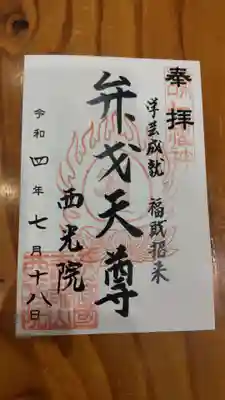 奉拝
学芸成就 福財招来
弁才天尊
西光院
令和四年七月十八日